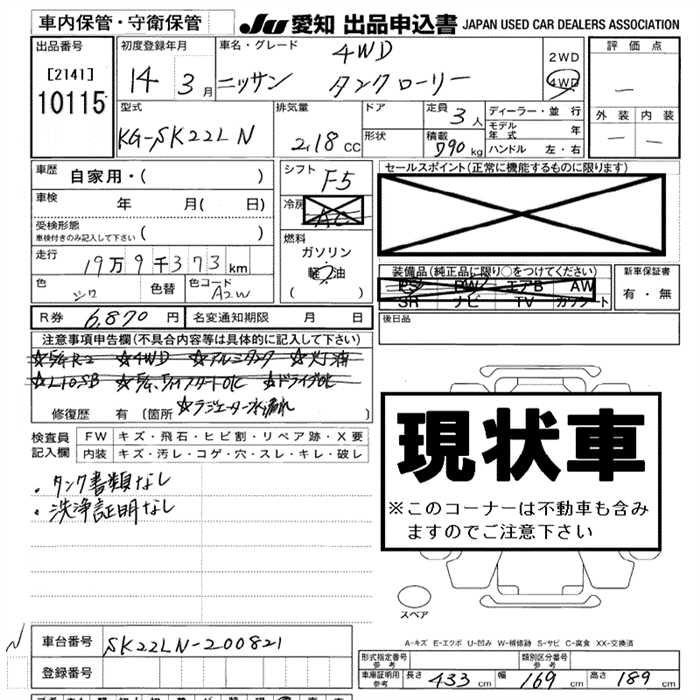 車内保管・守衛保管 JU 愛知 出品申込書 JAPAN USED CAR DEALERS ASSOCIATION
出品番号 初度登録年月 車名・グレード 4WD 2WD 評価点
[2141] 14 3月 ニッサン タンクローリー 4WD —
10115 型式 排気量 ドア 定員 3人 ディーラー・並行 外装 内装
モデル年式 年
KG-SK22LN 2,18 CC 形状 積載 790 kg ハンドル 左・右 — —
車歴 自家用・( ) シフト F5 セールスポイント(正常に機能するものに限ります)
車検 年 月( 日) 冷房 AC
受検形態 車検付きのみ記入して下さい ( ) 燃料
ガソリン
走行 19万9千373km 軽油 装備品(純正品に限り○をつけてください) 新車保証書
色 シロ 色替 色コード A2W ( ) PS PW エアB AW 有・無
SR ナビ TV カセット
R券 6,870円 名変通知期限 月 日 後日品
注意事項申告欄(不具合内容等は具体的に記入して下さい)
☆5/4R-2 ☆4WD ☆アルミタンク ☆灯油
☆L10SB ☆ドライブOK
修復歴 有(箇所 ☆ラジエーター水漏れ )
検査員記入欄 FW キズ・飛石・ヒビ割・リペア跡・X要
内装 キズ・汚レ・コゲ・穴・スレ・キレ・破レ
現状車
※このコーナーは不動車も含みますのでご注意下さい
・タンク書類なし
・洗浄証明なし
スペア
A-キズ E-エクボ U-凹み W-補修跡 S-サビ C-腐食 XX-交換済
車台番号 SK22LN-200821
形式指定番号 参考 類別区分番号 参考
登録番号 車庫証明用 参考 長さ 433 cm 幅 169 cm 高さ 189 cm